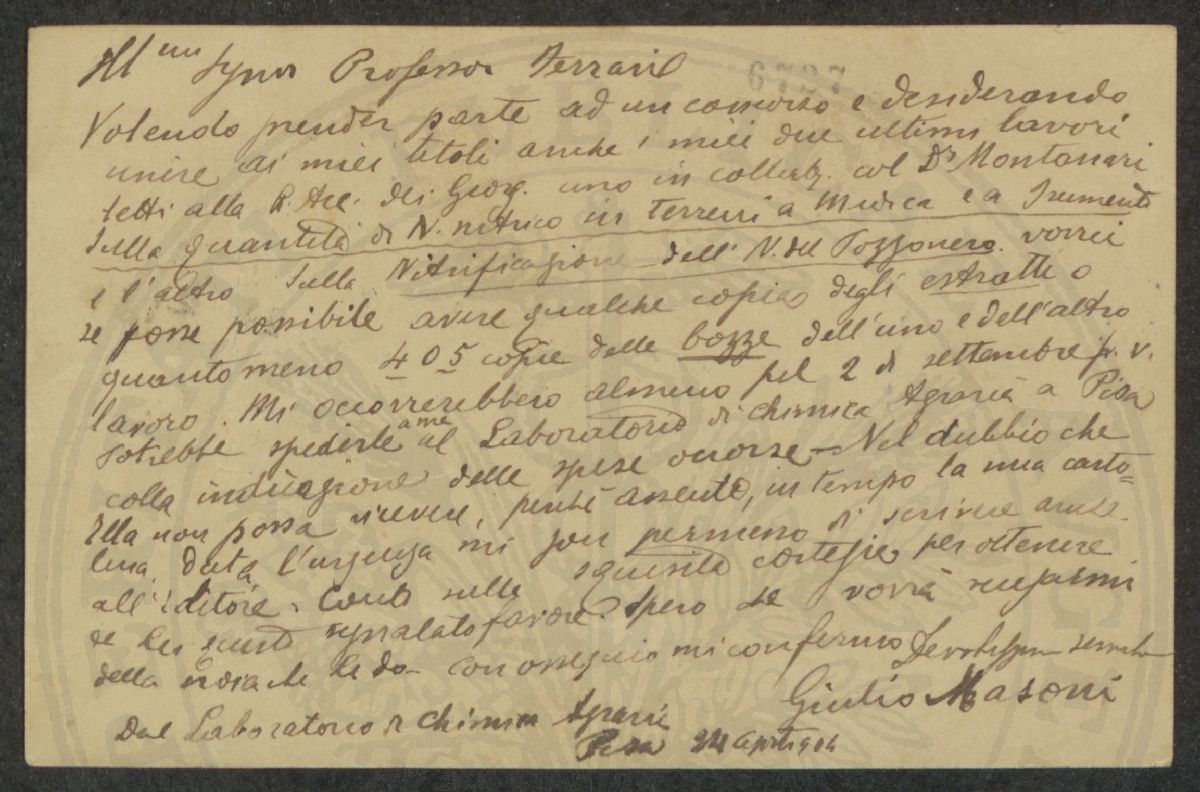 Ill.mo Signor Professor Ferrari
6797
Volendo prender parte ad un concorso e desiderando
unire ai miei titoli anche i miei due ultimi lavori
letti alla R. Acc. dei Georg. uno in collab. col Dr Montanari
sulla quantità di N. nitrico in terreni a Medica e a Frumento
e l'altro sulla Nitrificazione dell'N. del Pozzonero. vorrei
se fosse possibile avere qualche copia degli estratti o
quantomeno 4 o 5 copie delle bozze dell'uno e dell'altro
lavoro. Mi occorrerebbero almeno pel 2 di settembre p. v.
Potrebbe spedirle a me al Laboratorio di chimica Agraria a Pisa
colla indicazione delle spese occorse - Nel dubbio che
Ella non possa ricevere, perchè assente, in tempo la mia carto=
lina, data l'urgenza mi son permesso di scrivere anche
all'Editore. Conto sulla squisita cortesia per ottenere
se Lei questo segnalato favore. Spero se vorrà scusarmi
della noia che Le do - con ossequio mi confermo
Giulio Masoni
Dal Laboratorio di Chimica Agraria
Pisa 24 904